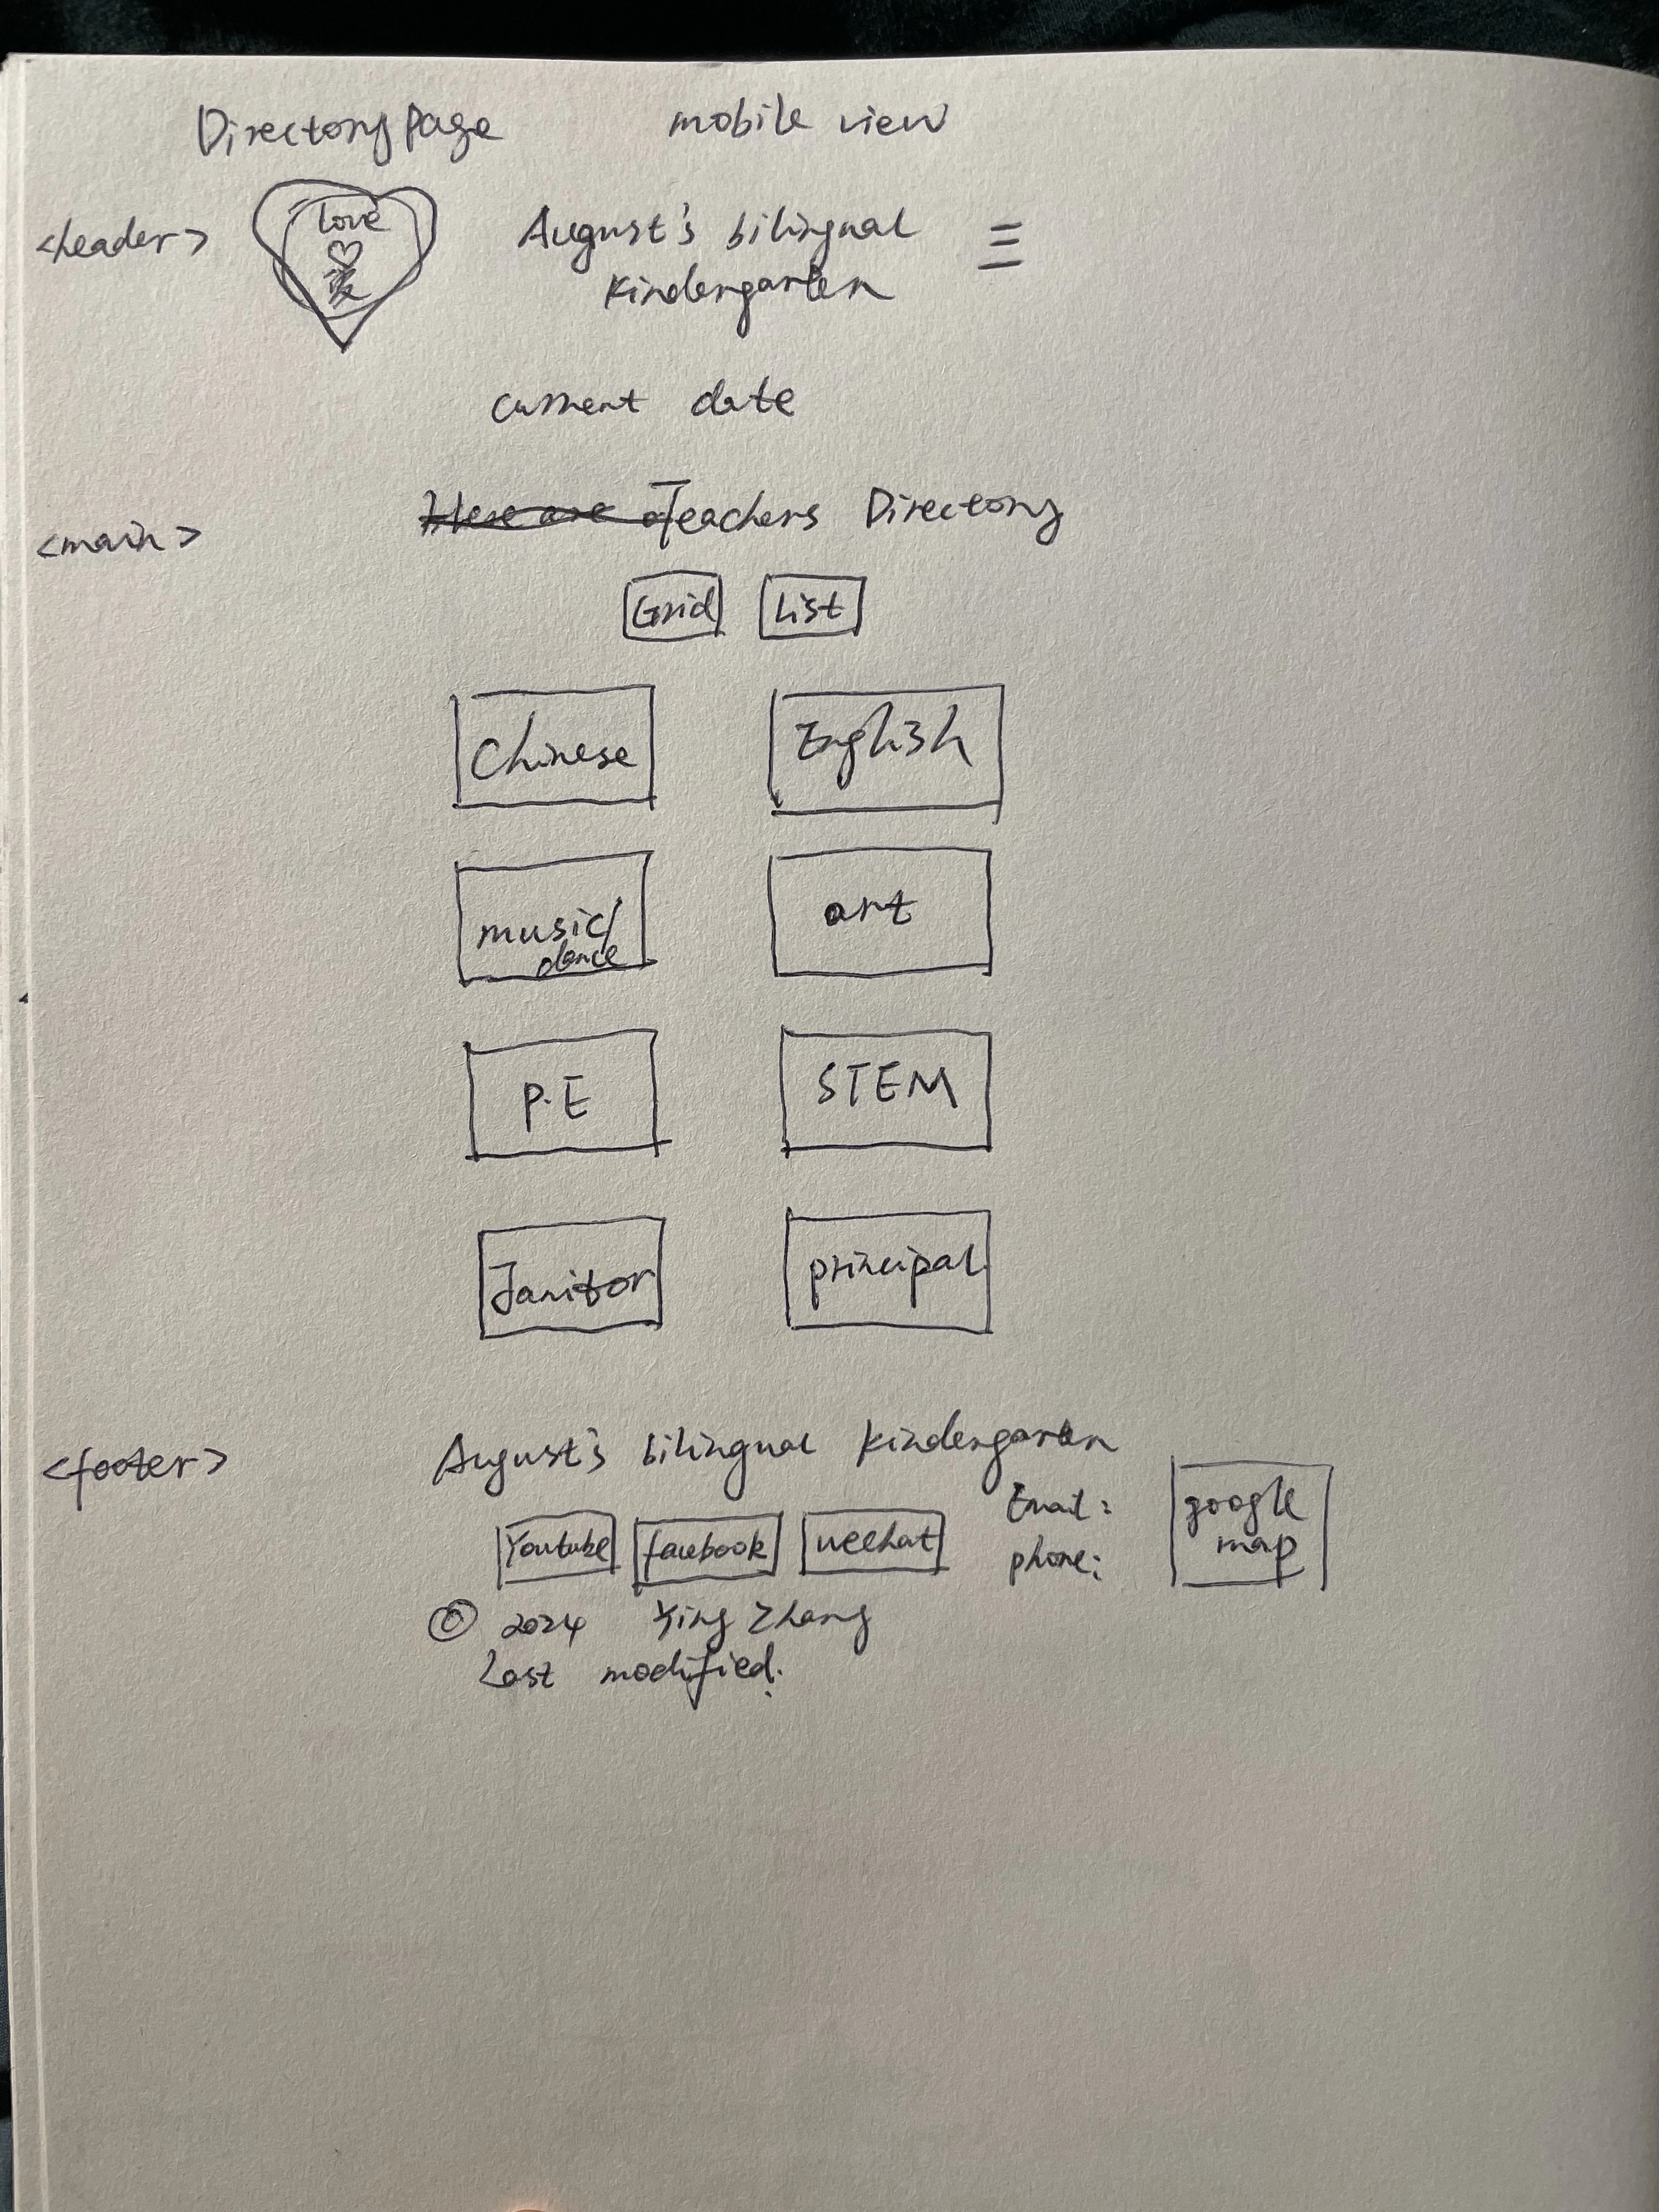 Directory page mobile view
<header>
love
爱
August's bilingual
kindergarten
current date
<main>
Teachers Directory
Grid List
Chinese English
music/
dance
art
P.E STEM
Janitor principal
<footer>
August's bilingual kindergarten
Youtube facebook wechat
Email:
phone:
google
map
© 2024 Ying Zhang
Last modified: